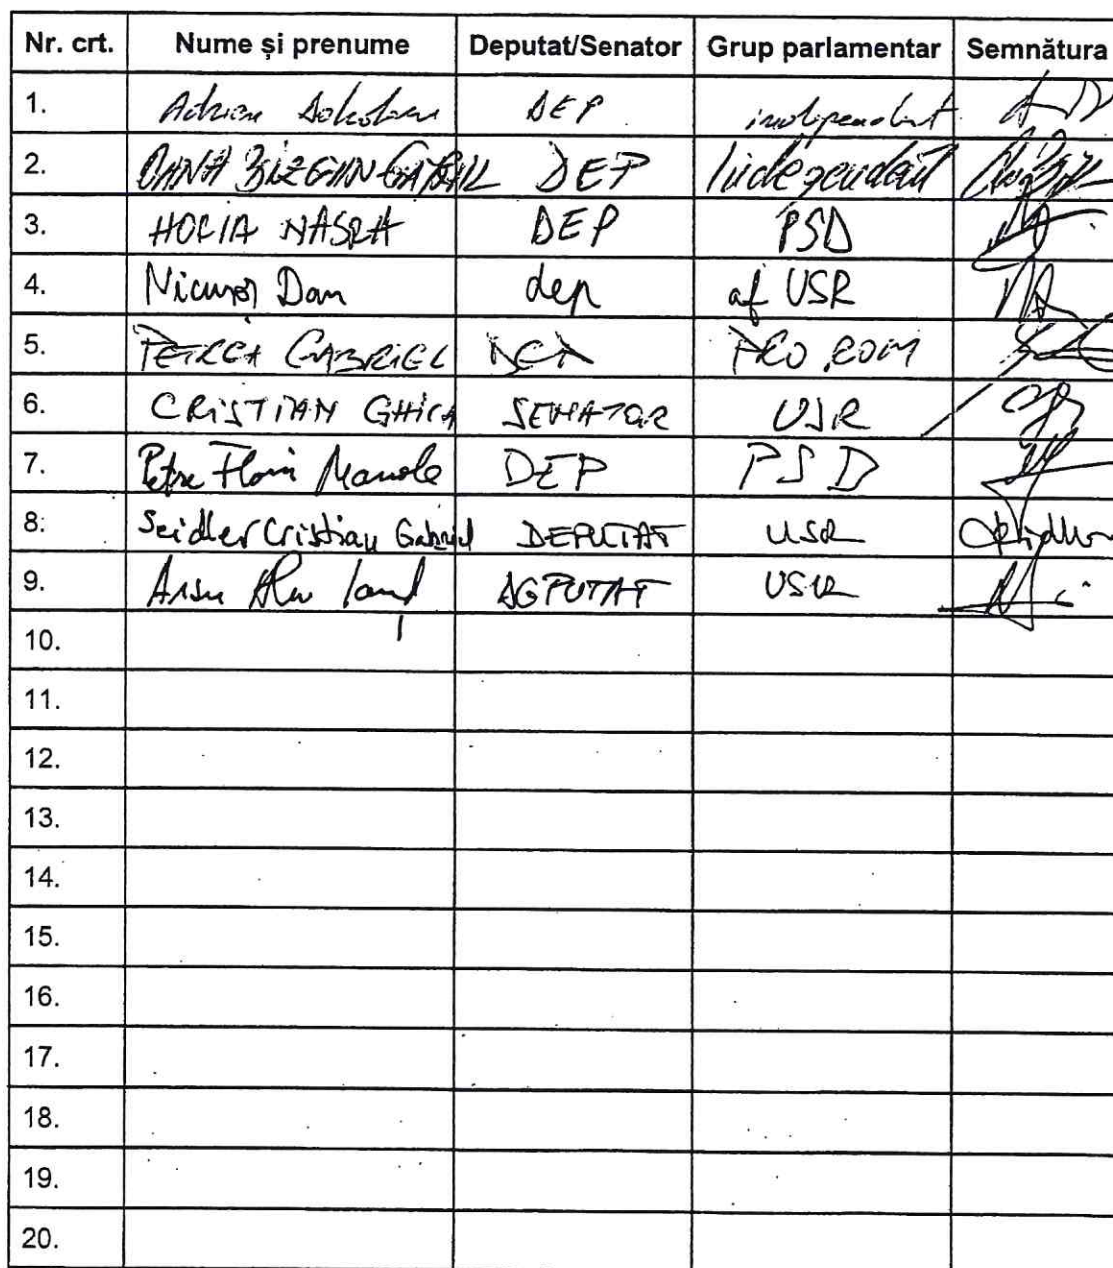 Nr. crt. Nume și prenume Deputat/Senator Grup parlamentar Semnătura
1. Adrian Dohotaru DEP independent
2. OANA BÎZGAN-GAYRAL DEP Independent
3. HORIA NASRA DEP PSD
4. Nicușor Dan dep af USR
5. PETREA GABRIEL DEP PRO ROM
6. CRISTIAN GHICA SENATOR USR
7. Petre Florin Manole DEP PSD
8. Seidler Cristian Gabriel DEPUTAT USR
9. DEPUTAT USR
10.
11.
12.
13.
14.
15.
16.
17.
18.
19.
20.